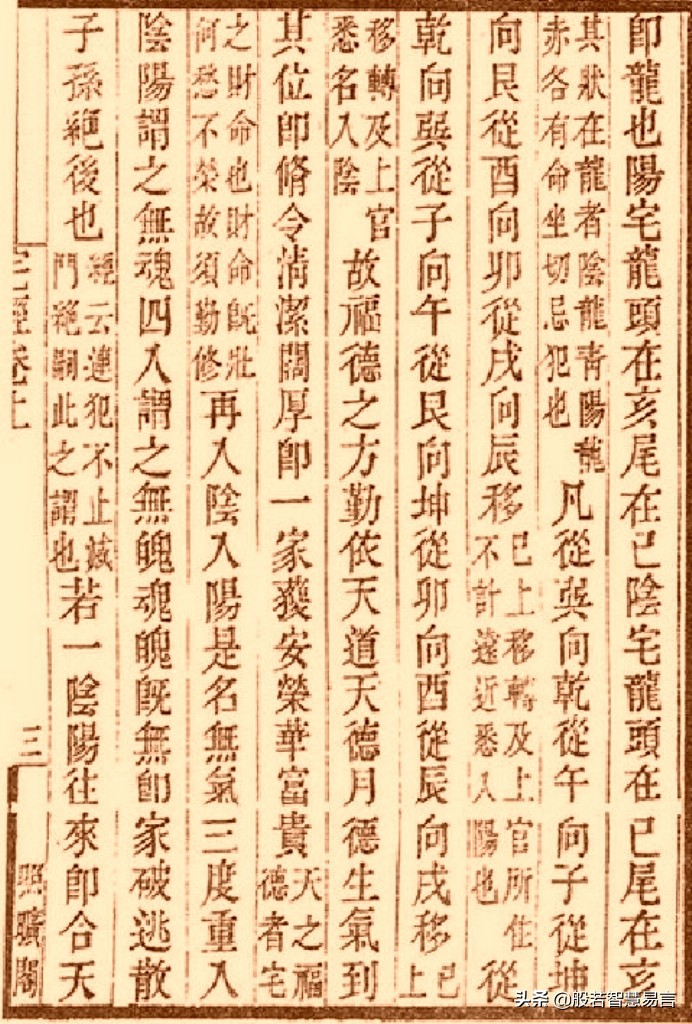 即龍也陽宅龍頭在亥尾在巳陰宅龍頭在巳尾在亥
其狀在龍者陰龍青陽龍赤各有命坐切忌犯也凡從巽向乾從午向子從坤
向艮從酉向卯從戌向辰移已上移轉及上官所住不計遠近悉入陽也從
乾向巽從子向午從艮向坤從卯向酉從辰向戌移已上
移轉及上官悉名入陰故福德之方勤依天道天德月德生氣到
其位即脩令清潔闊厚即一家獲安榮華富貴天之福德者宅
之財命也財命既壯何愁不榮故須勤修再入陰入陽是名無氣三度重入
陰陽謂之無魂四入謂之無魄魂魄既無即家破逃散
子孫絕後也經云連犯不止滅門絕嗣此之謂也若一陰陽往來即合天
宅經卷上 三 照曠閣
头条 @般若智慧易言